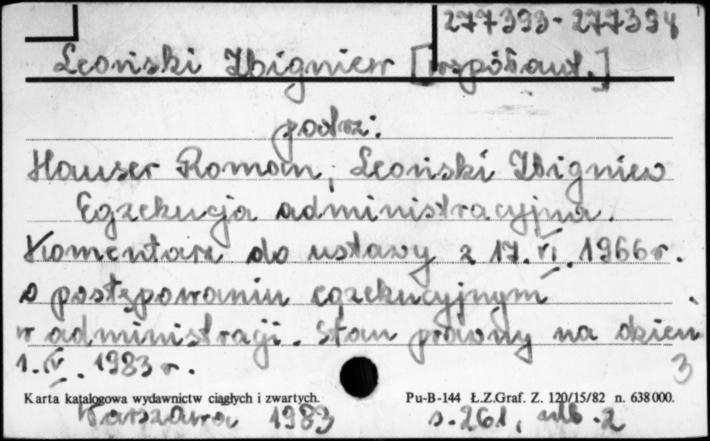 277393-277394
Leoński Zbigniew [współaut.]
podrz:
Hauser Roman, Leoński Zbigniew
Egzekucja administracyjna.
Komentarz do ustawy z 17.VI.1966r.
o postępowaniu egzekucyjnym
w administracji. Stan prawny na dzień
1.IV.1983r.
3
Karta katalogowa wydawnictw ciągłych i zwartych. Pu-B-144 Ł.Z.Graf. Z. 120/15/82 n. 638000.
Warszawa 1983 s.261, nlb.2